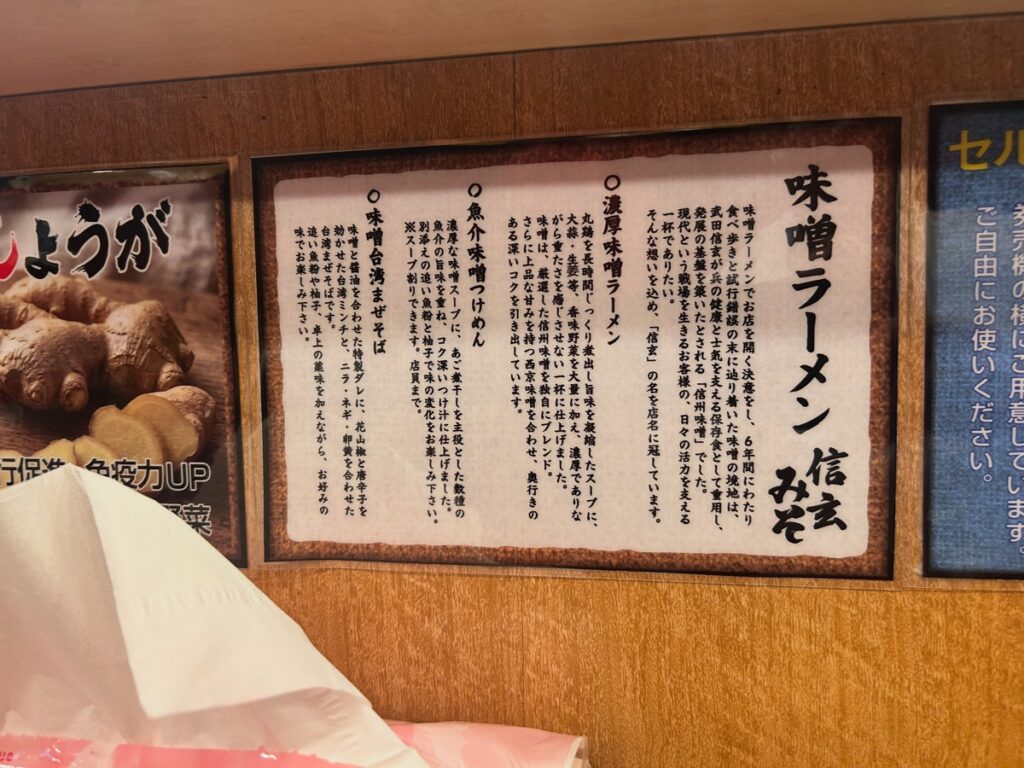 味噌ラーメン 信玄みそ
味噌ラーメンでお店を開く決意をし、6年間にわたり
食べ歩きと試行錯誤の末に辿り着いた味噌の境地は、
武田信玄が兵の健康と士気を支える保存食として重用し、
発展の基盤を築いたとされる「信州味噌」でした。
現代という戦場を生きるお客様の、日々の活力を支える
一杯でありたい。
そんな想いを込め、「信玄」の名を店名に冠しています。
○濃厚味噌ラーメン
丸鶏を長時間じっくり煮出し旨味を凝縮したスープに、
大蒜・生姜等、香味野菜を大量に加え、濃厚でありな
がら重たさを感じさせない一杯に仕上げました。
味噌は、厳選した信州味噌を独自にブレンド。
さらに上品な甘みを持つ西京味噌を合わせ、奥行きの
ある深いコクを引き出しています。
○魚介味噌つけめん
濃厚な味噌スープに、あご煮干しを主役とした数種の
魚介の旨味を重ね、コク深いつけ汁に仕上げました。
別添えの追い魚粉と柚子で味の変化をお楽しみ下さい。
※スープ割りできます。店員まで。
○味噌台湾まぜそば
味噌と醤油を合わせた特製ダレに、花山椒と唐辛子を
効かせた台湾ミンチと、ニラ・ネギ・卵黄を合わせた
台湾まぜそばです。
追い魚粉や柚子、卓上の薬味を加えながら、お好みの
味でお楽しみ下さい。
しょうが
行促進 免疫力UP
野菜
セル
券売機の横にご用意しています。
ご自由にお使いください。